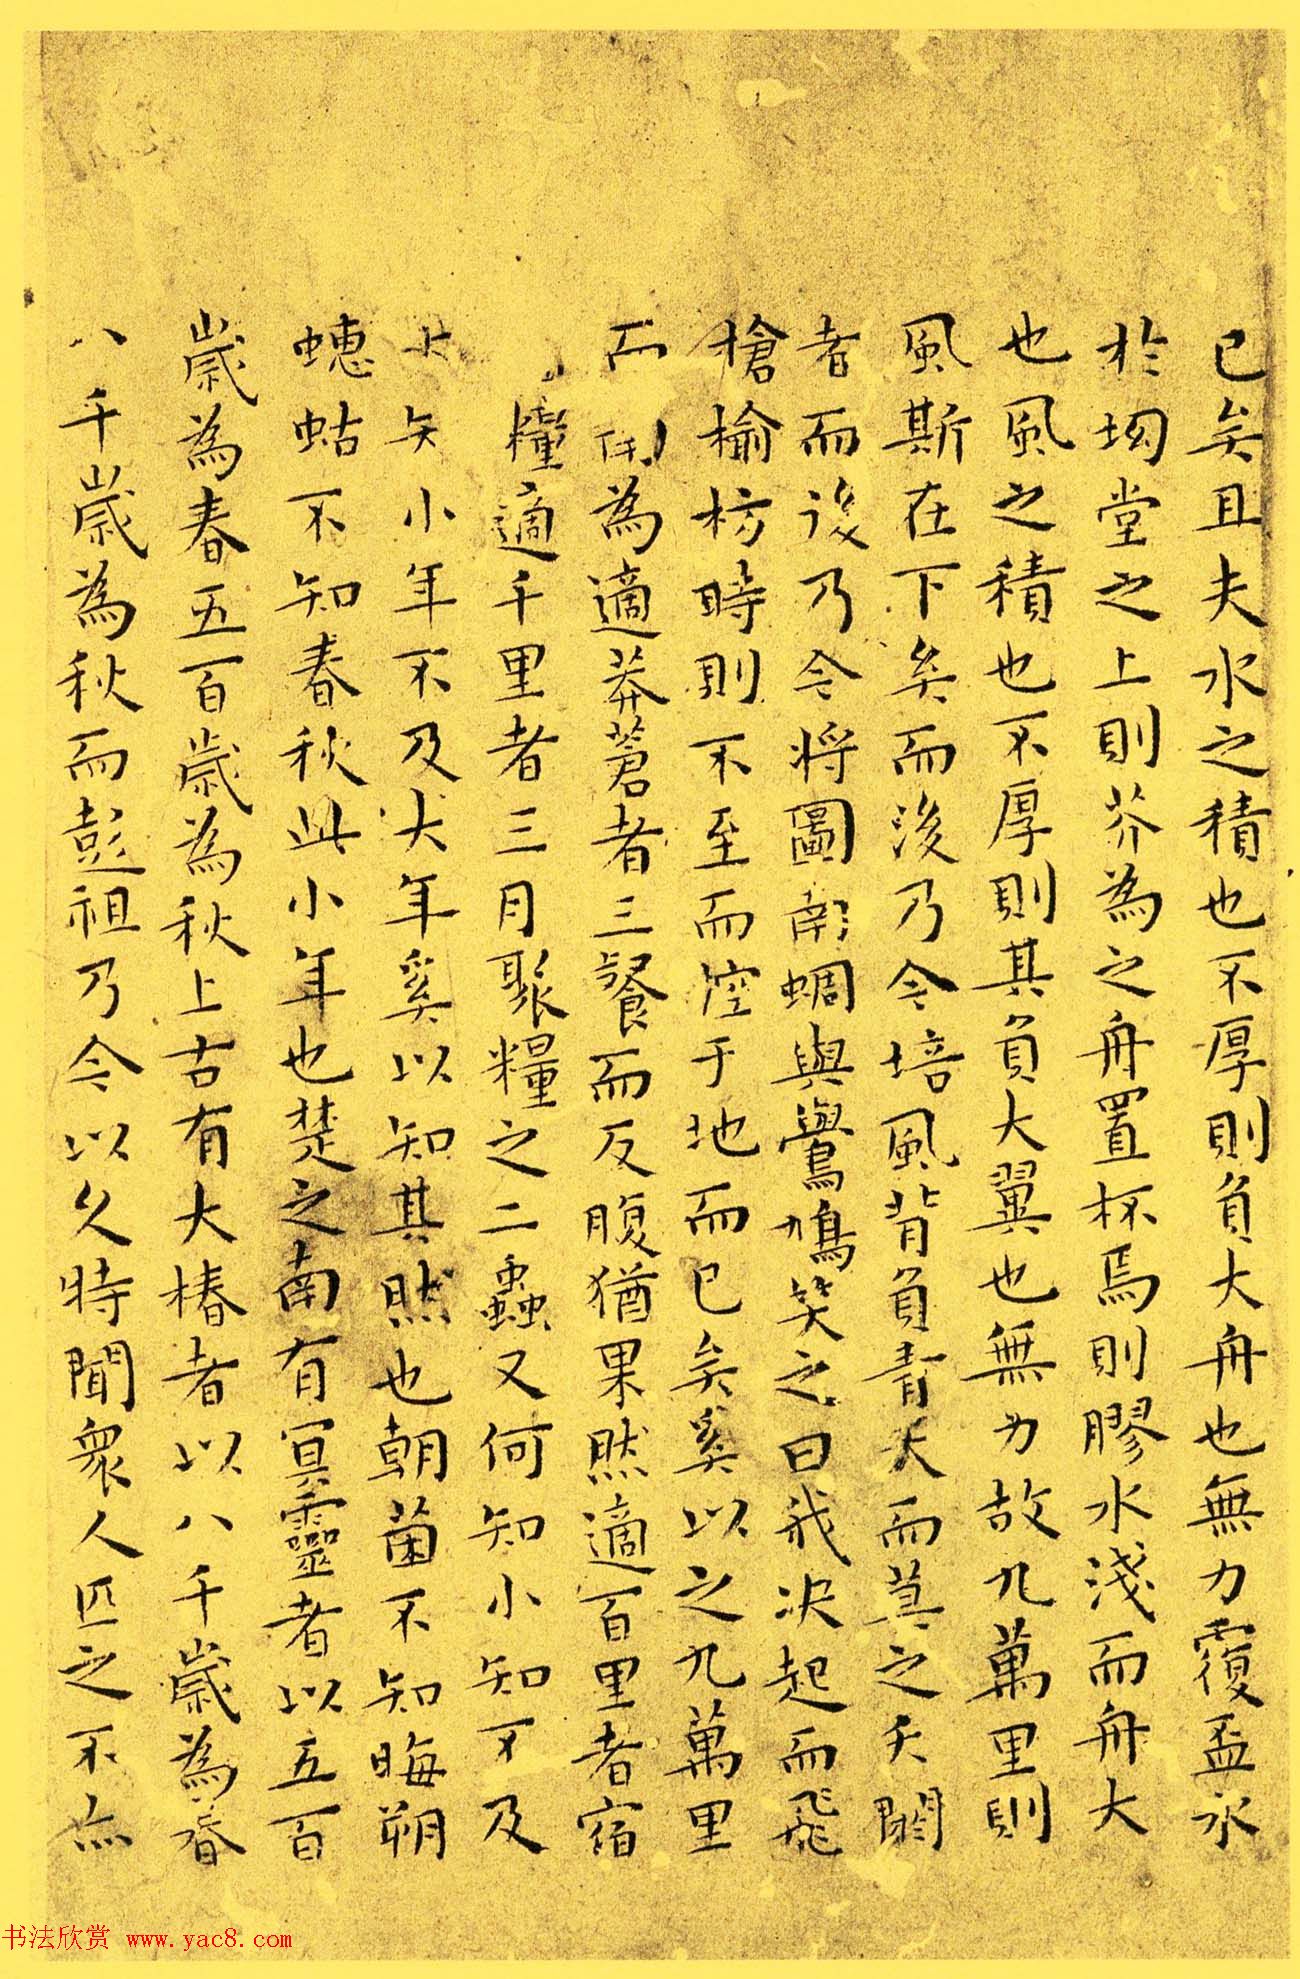 已矣且夫水之積也不厚則負大舟也無力覆盃水
於坳堂之上則芥為之舟置杯焉則膠水淺而舟大
也風之積也不厚則其負大翼也無力故九萬里則
風斯在下矣而後乃今培風背負青天而莫之夭閼
者而後乃今將圖南蜩與鷽鳩笑之曰我決起而飛
槍榆枋時則不至而控于地而已矣奚以之九萬里
而為適莽蒼者三餐而反腹猶果然適百里者宿
糧適千里者三月聚糧之二蟲又何知小知不及
大知小年不及大年奚以知其然也朝菌不知晦朔
蟪蛄不知春秋此小年也楚之南有冥靈者以五百
歲為春五百歲為秋上古有大椿者以八千歲為春
八千歲為秋而彭祖乃今以久特聞衆人匹之不亦
书法欣赏 www.yac8.com